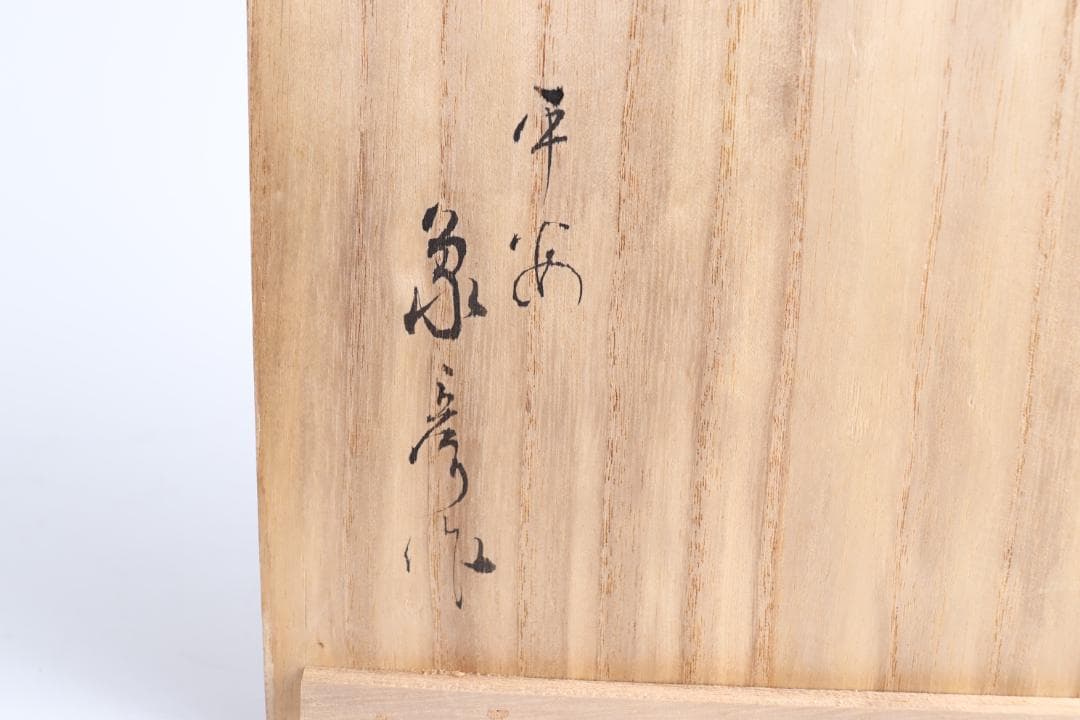 平安
象彦作